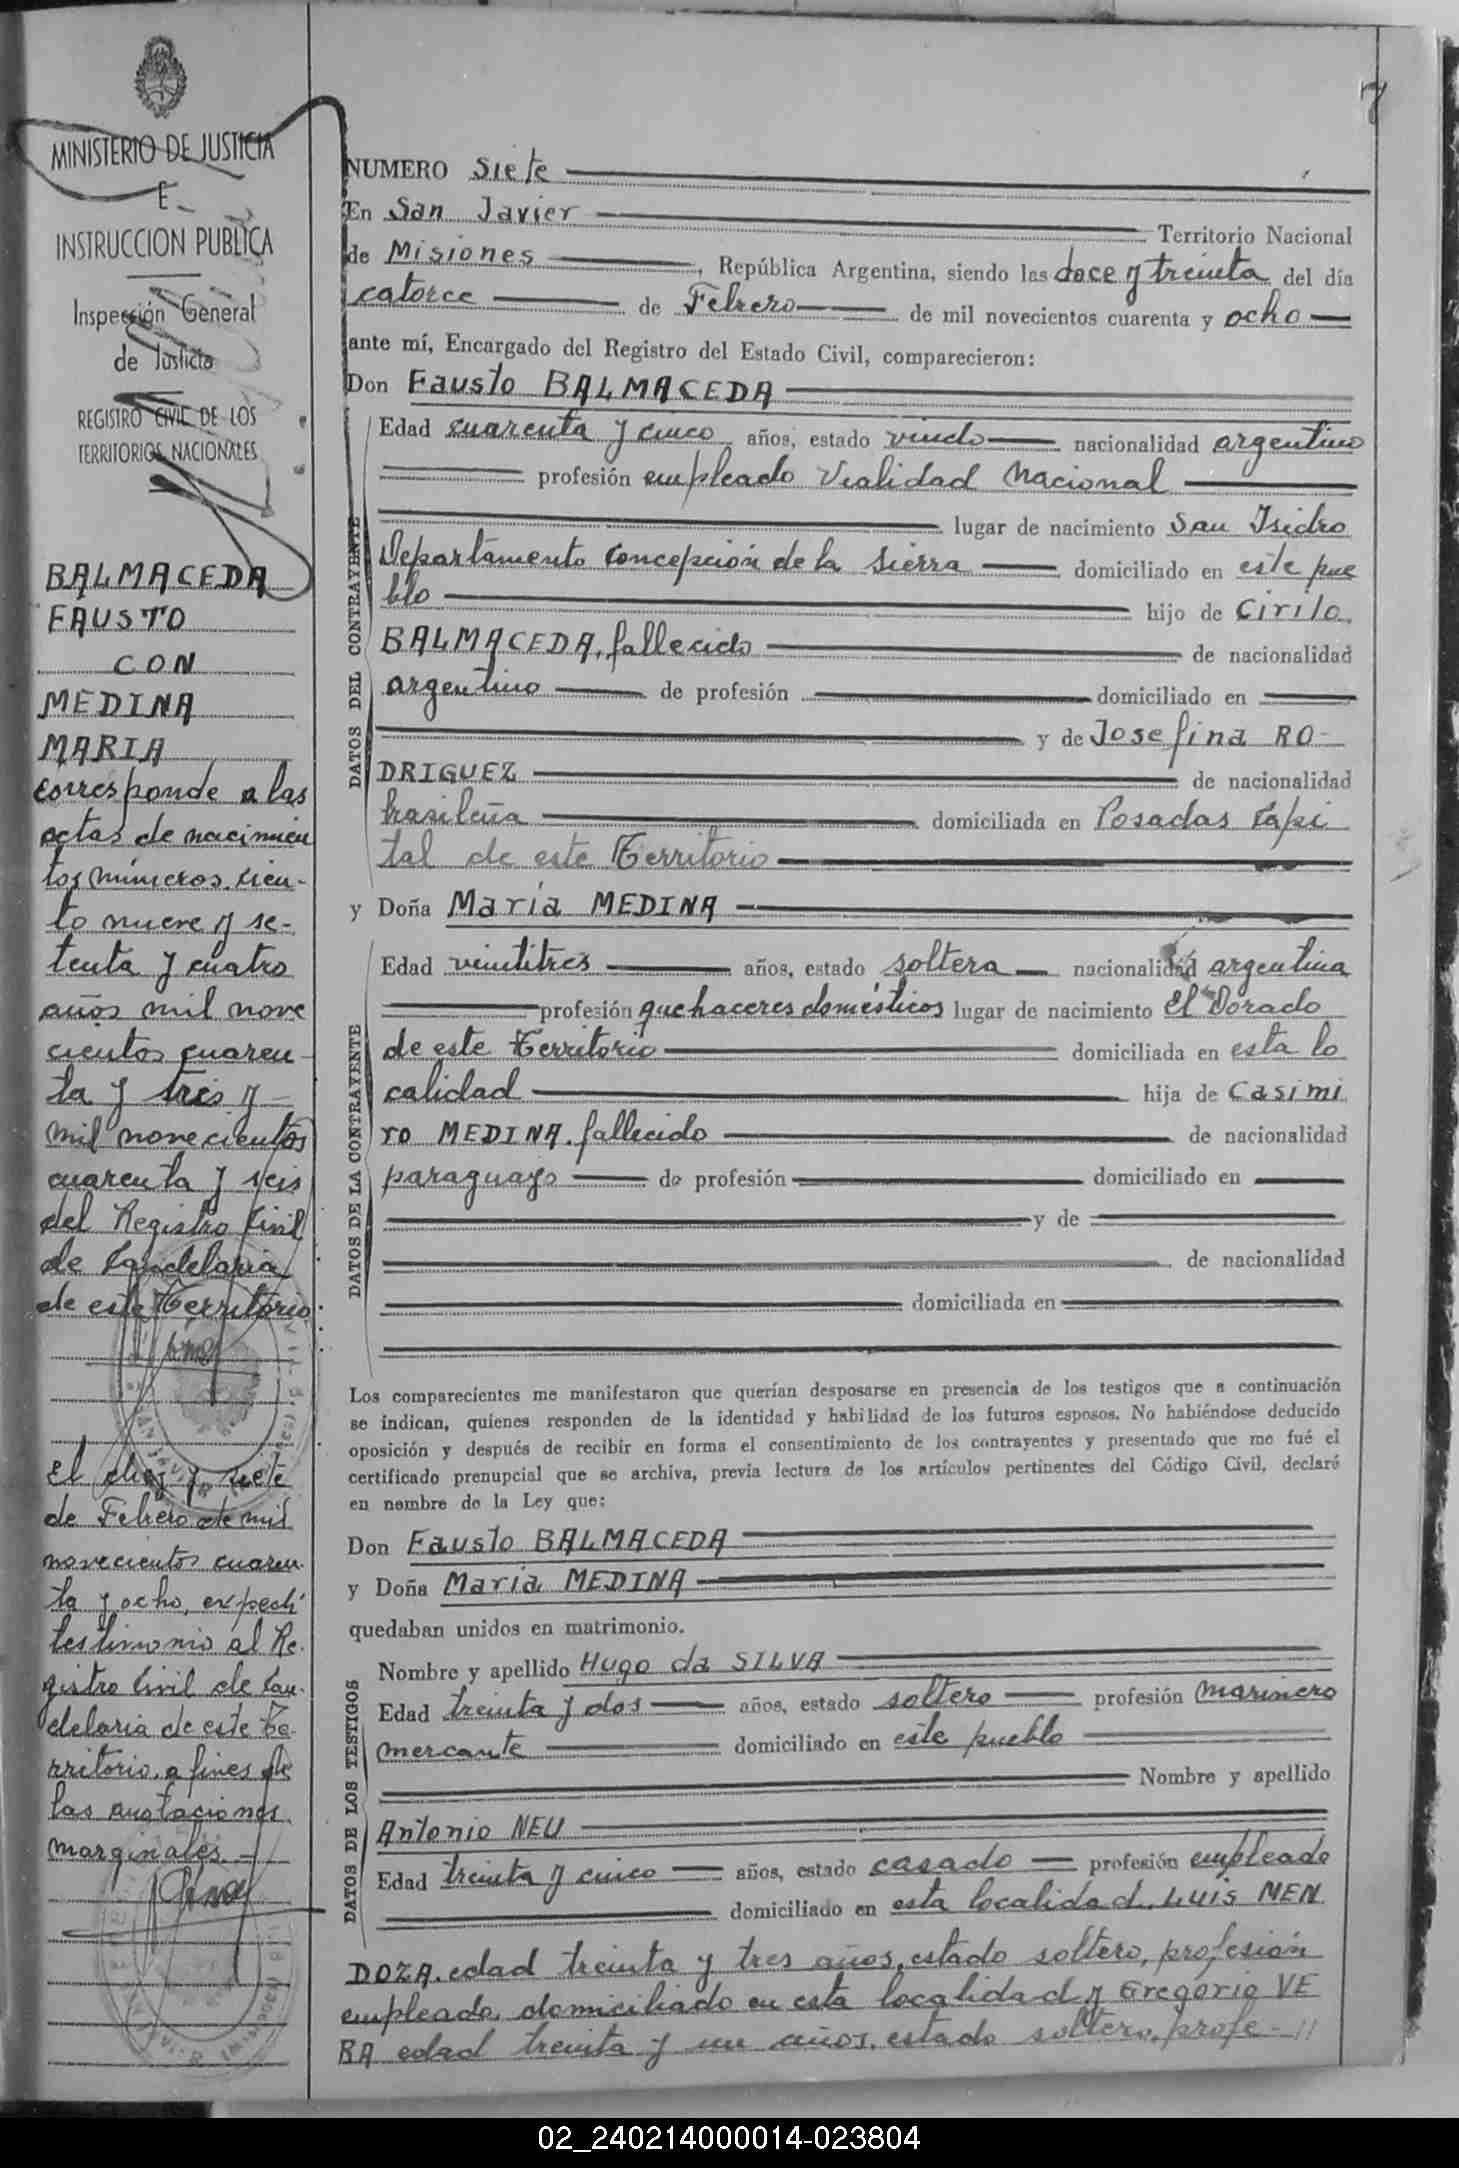 7
MINISTERIO DE JUSTICIA
E
INSTRUCCION PUBLICA
Inspección General
de Justicia
REGISTRO CIVIL DE LOS
TERRITORIOS NACIONALES
BALMACEDA
FAUSTO
CON
MEDINA
MARIA
corresponde a las
actas de nacimien
tos números cien-
to nueve y se-
tenta y cuatro
años mil nove
cientos cuaren-
ta y tres y
mil novecientos
cuarenta y seis
del Registro Civil
de Candelaria
de este Territorio
El diez y siete
de Febrero de mil
novecientos cuaren-
ta y ocho, expedí
testimonio al Re-
gistro Civil de Can-
delaria de este Te-
rritorio, a fines de
las anotaciones
marginales.-
NUMERO Siete
En San Javier Territorio Nacional
de Misiones, República Argentina, siendo las doce y treinta del día
catorce de Febrero de mil novecientos cuarenta y ocho
ante mí, Encargado del Registro del Estado Civil, comparecieron:
Don Fausto BALMACEDA
DATOS DEL CONTRAYENTE
Edad cuarenta y cinco años, estado viudo nacionalidad argentino
profesión empleado Vialidad Nacional
lugar de nacimiento San Isidro
Departamento Concepción de la Sierra domiciliado en este pue
blo hijo de Cirilo
BALMACEDA, fallecido de nacionalidad
argentino de profesión domiciliado en
y de Josefina RO-
DRIGUEZ de nacionalidad
brasileña domiciliada en Posadas Capi
tal de este Territorio
y Doña María MEDINA
DATOS DE LA CONTRAYENTE
Edad veintitres años, estado soltera nacionalidad argentina
profesión quehaceres domésticos lugar de nacimiento El Dorado
de este Territorio domiciliada en esta lo
calidad hija de Casimi
ro MEDINA, fallecido de nacionalidad
paraguayo de profesión domiciliado en
y de
de nacionalidad
domiciliada en
Los comparecientes me manifestaron que querían desposarse en presencia de los testigos que a continuación
se indican, quienes responden de la identidad y habilidad de los futuros esposos. No habiéndose deducido
oposición y después de recibir en forma el consentimiento de los contrayentes y presentado que me fué el
certificado prenupcial que se archiva, previa lectura de los artículos pertinentes del Código Civil, declaré
en nombre de la Ley que:
Don Fausto BALMACEDA
y Doña Maria MEDINA
quedaban unidos en matrimonio.
DATOS DE LOS TESTIGOS
Nombre y apellido Hugo da SILVA
Edad treinta y dos años, estado soltero profesión marinero
mercante domiciliado en este pueblo
Nombre y apellido
Antonio NEU
Edad treinta y cinco años, estado casado profesión empleado
domiciliado en esta localidad, Luis MEN
DOZA, edad treinta y tres años, estado soltero, profesión
empleado, domiciliado en esta localidad y Gregorio VE
RA edad treinta y un años, estado soltero, profe-//
02_240214000014-023804